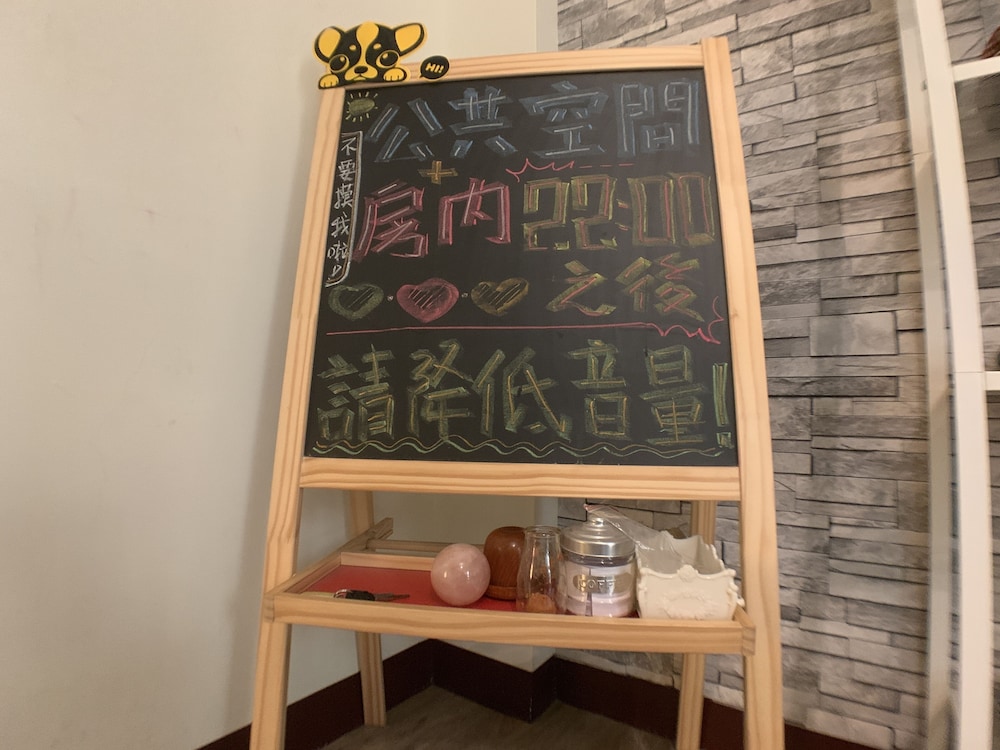 HI!
公共空間
+
房内 22:00
之後
請降低音量!
不要摸我啦!